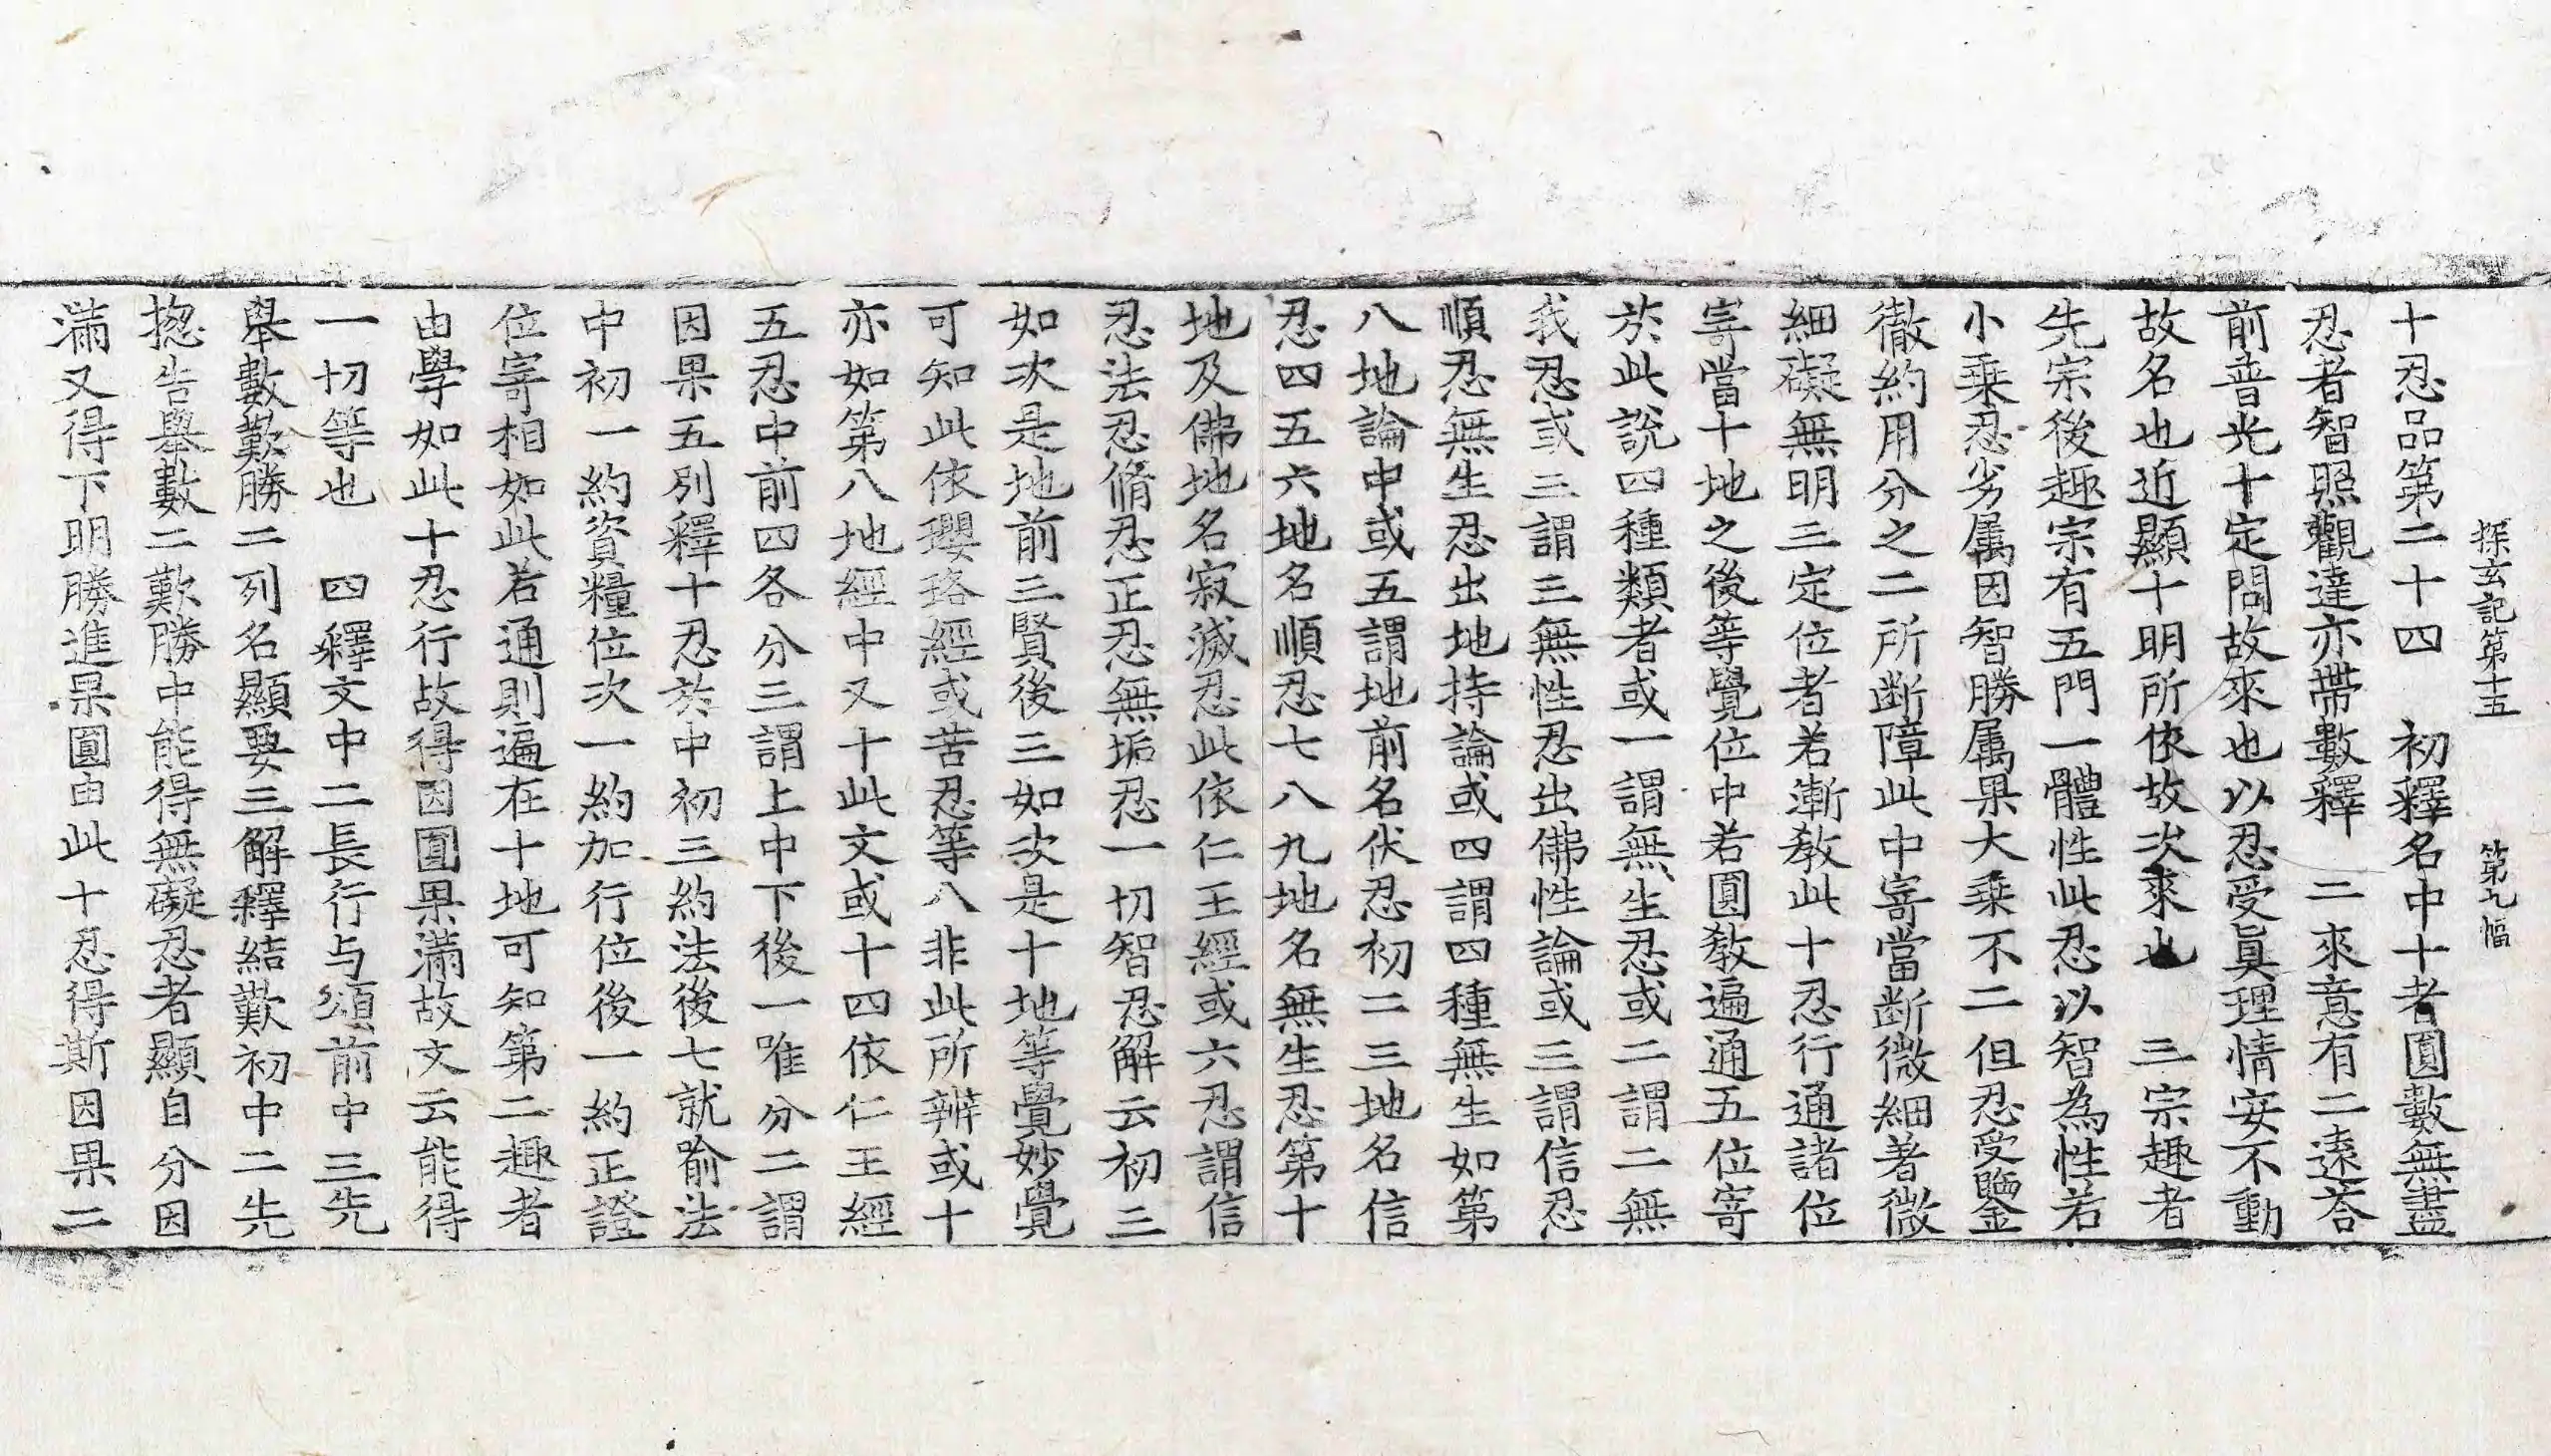 探玄記第十五 第九幅
十忍品第二十四 初釋名中十者圓數無盡
忍者智照觀達亦帶數釋 二來意有二遠荅
前普光十定問故來也以忍受眞理情安不動
故名也近顯十明所依故次來也 三宗趣者
先宗後趣宗有五門一體性此忍以智為性若
小乘忍劣属因智勝属果大乘不二但忍受鑒
徹約用分之二所断障此中寄當断微細著微
細礙無明三定位者若漸教此十忍行通諸位
寄當十地之後等覺位中若圓教遍通五位寄
於此說四種類者或一謂無生忍或二謂二無
我忍或三謂三無性忍出佛性論或三謂信忍
順忍無生忍出地持論或四謂四種無生如第
八地論中或五謂地前名伏忍初二三地名信
忍四五六地名順忍七八九地名無生忍第十
地及佛地名寂滅忍此依仁王經或六忍謂信
忍法忍脩忍正忍無垢忍一切智忍解云初三
如次是地前三賢後三如次是十地等覺妙覺
可知此依瓔珞經或苦忍等八非此所辨或十
亦如第八地經中又十此文或十四依仁王經
五忍中前四各分三謂上中下後一唯分二謂
因果五別釋十忍於中初三約法後七就喻法
中初一約資糧位次一約加行位後一約正證
位寄相如此若通則遍在十地可知第二趣者
由學如此十忍行故得因圓果滿故文云能得
一切等也 四釋文中二長行与頌前中三先
舉數歎勝二列名顯要三解釋結歎初中二先
揔告舉數二歎勝中能得無礙忍者顯自分因
滿又得下明勝進果圓由此十忍得斯因果二